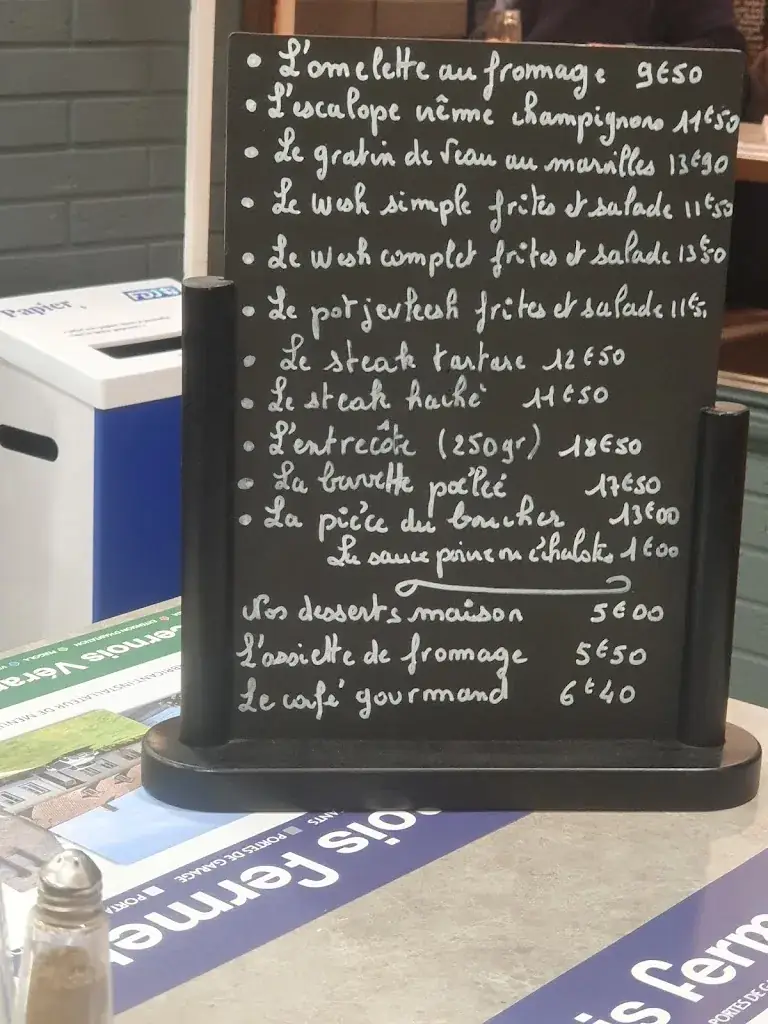 • L'omelette au fromage 9€50
• L'escalope crême champignons 11€50
• Le gratin de veau au maroilles 13€90
• Le wesh simple frites et salade 11€50
• Le wesh complet frites et salade 13€50
• Le potjevleesh frites et salade 11€5
• Le steak tartare 12€50
• Le steak haché 11€50
• L'entrecôte (250gr) 18€50
• La bavette poêlée 17€50
• La pièce du boucher 13€00
La sauce poivre ou échalote 1€00
Nos desserts maison 5€00
L'assiette de fromage 5€50
Le café gourmand 6€40
Papier
ernois Véran
FABRICANT INSTALLATEUR DE MENU
PORTES DE GARAGE
ois fermet
is ferm
PORTES DE GA